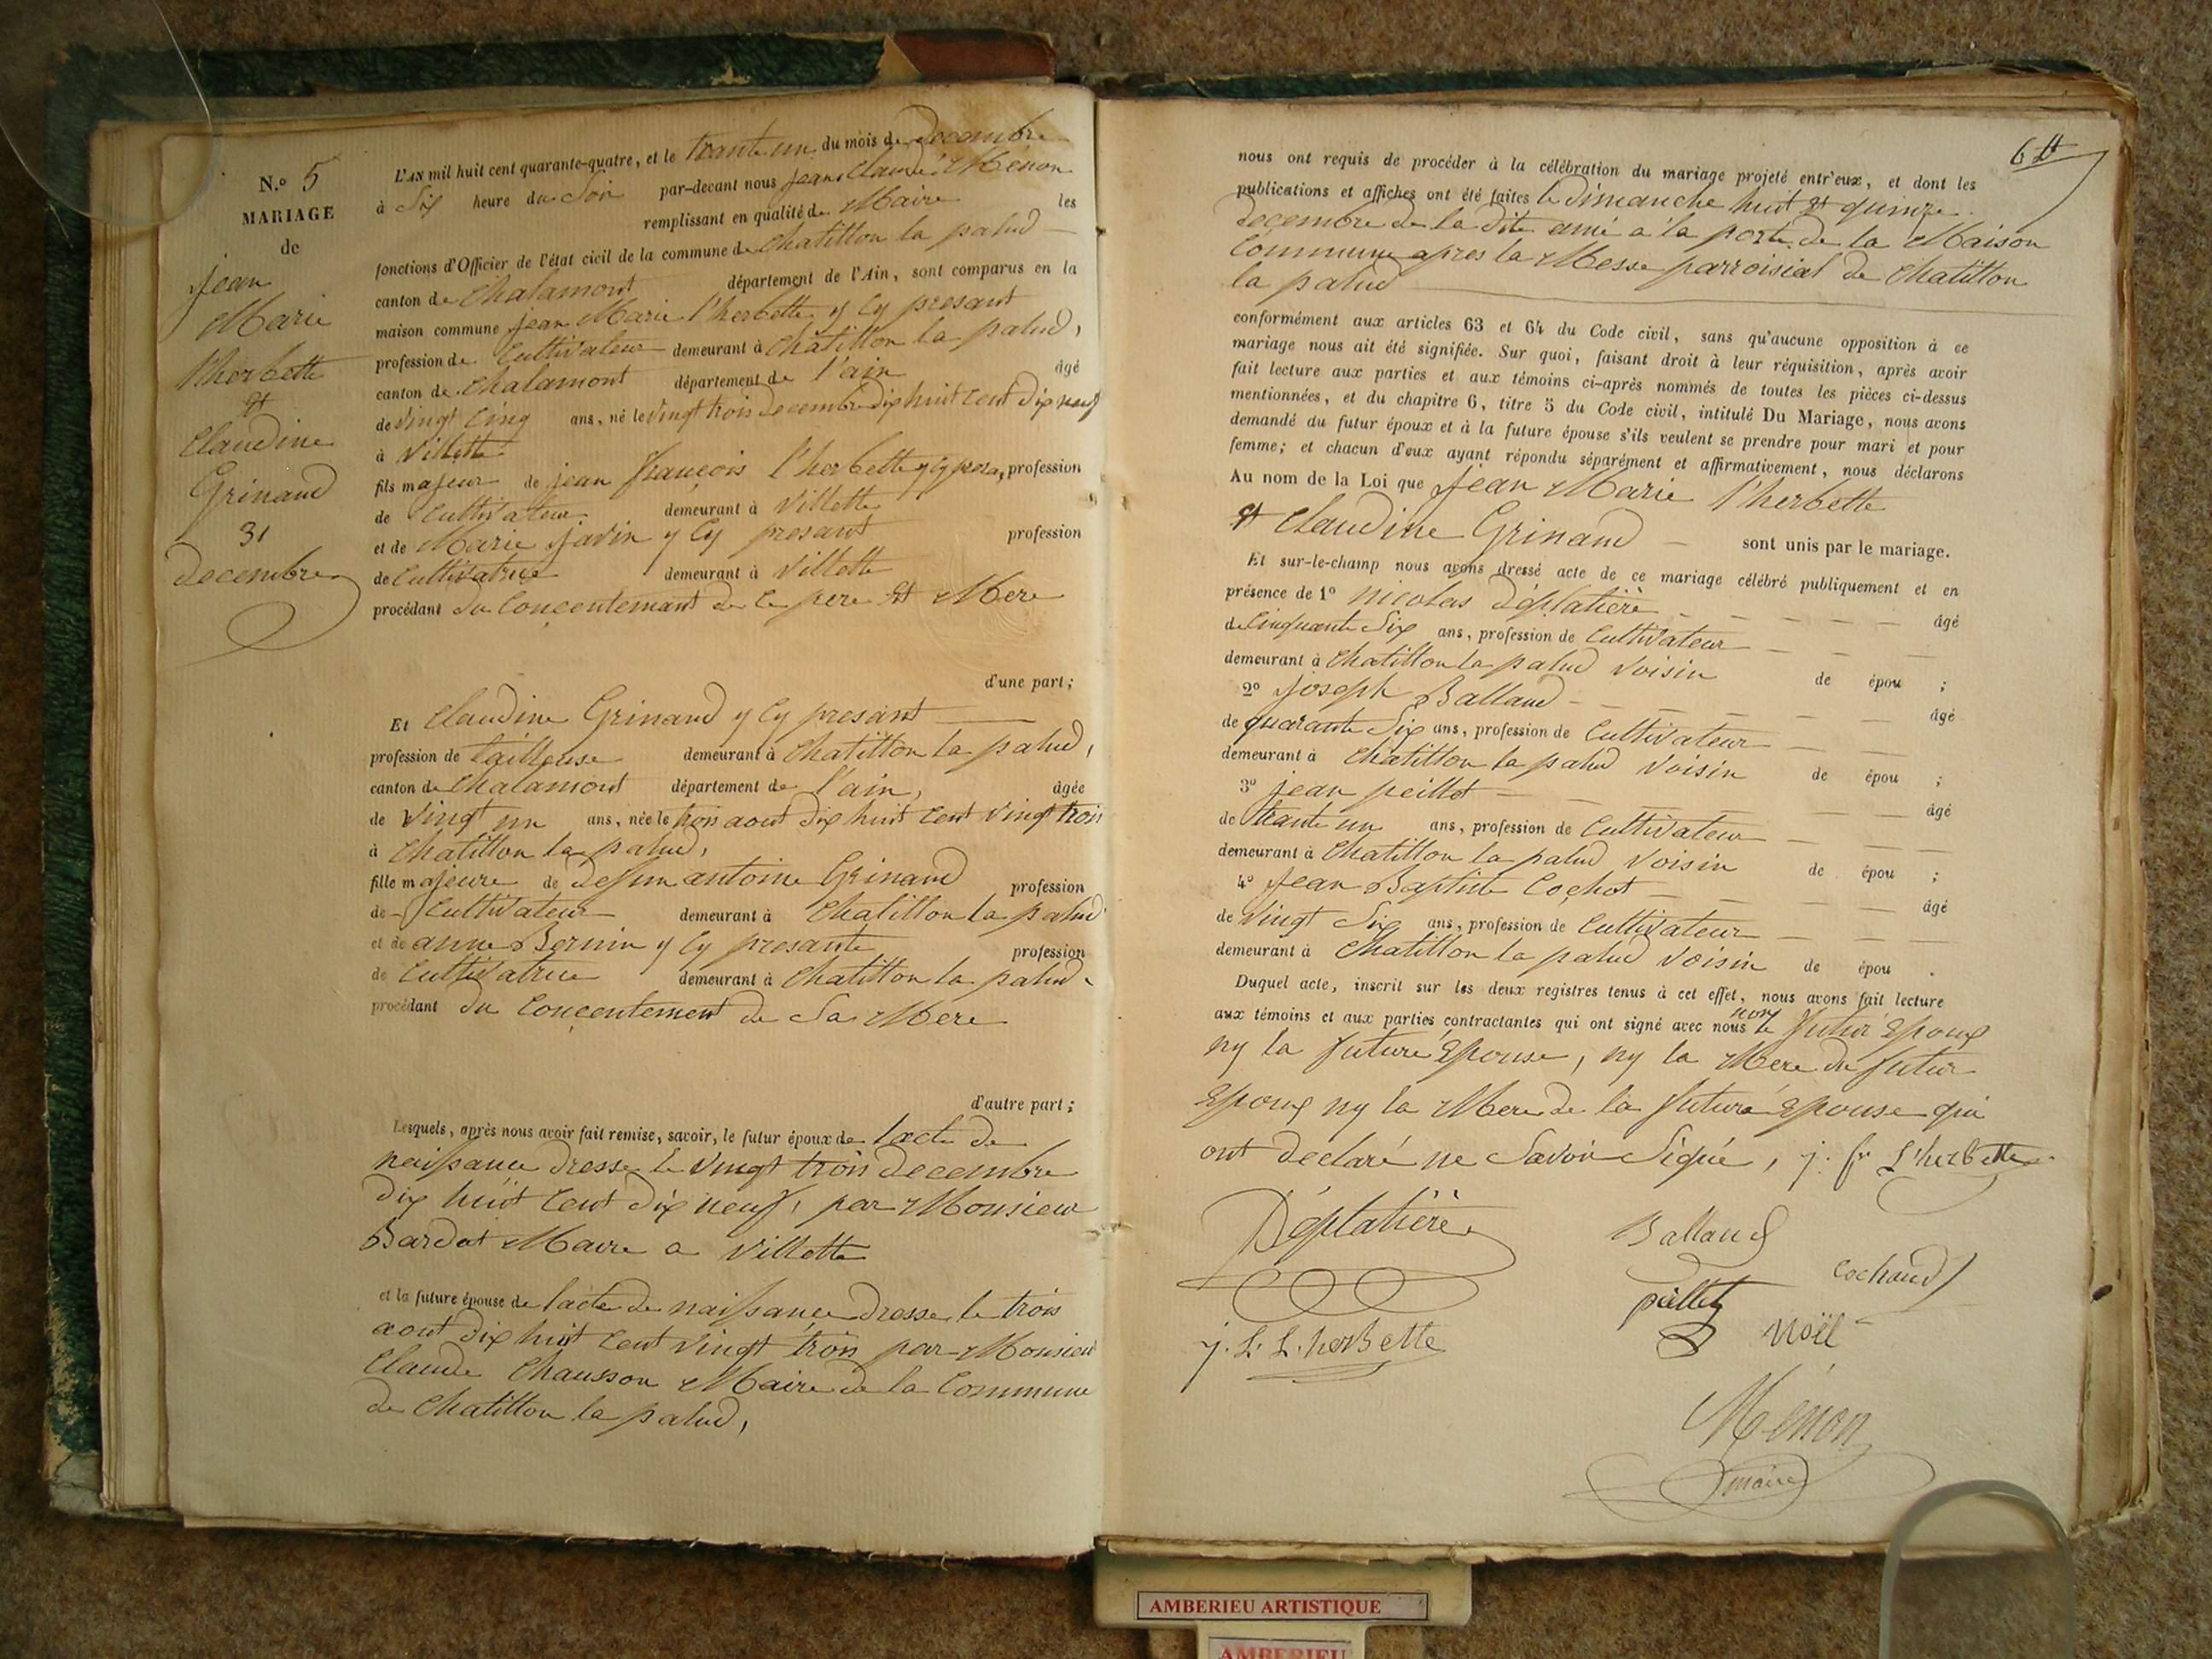 N.o 5
MARIAGE
de
jean
Marie
l'herbette
et
Claudine
Grinand
31
decembre
L'AN mil huit cent quarante-quatre, et le trante un du mois de decembre
à Six heure du Soir par-devant nous jean Claude Ménon
remplissant en qualité de Maire les
fonctions d'Officier de l'état civil de la commune de chatillon la palud
canton de Chalamont département de l'Ain, sont comparus en la
maison commune jean Marie l'herbette y Cy presant
profession de Cultivateur demeurant à chatillon la palud,
canton de chalamont département de l'ain âgé
de vingt cinq ans, né le vingt trois decembre dix huit cent dix neuf
à Villette
fils majeur de jean françois l'herbette y cy presa, profession
de Cultivateur demeurant à Villette
et de Marie javin y Cy presant profession
de Cultivatrice demeurant à Villette
procédant du Conçentemant de Ce pere et Mere
d'une part;
Et Claudine Grinand y Cy presant
profession de tailleuse demeurant à Chatillon la palud,
canton de Chalamont département de l'ain, âgée
de Vingt un ans, née le trois aout dix huit cent vingt trois
à Chatillon la palud,
fille majeure de defun antoine Grinand profession
de Cultivateur demeurant à Chatillon la palud
et de anne Bernin y Cy presante profession
de Cultivatrice demeurant à Chatillon la palud
procédant du Conçentement de Sa Mere
d'autre part;
Lesquels, après nous avoir fait remise, savoir, le futur époux de l'acte de
naissance dresse le vingt trois decembre
dix huit cent dix neuf, par Monsieur
Bardot Maire a Villette
et la future épouse de l'acte de naissance dresse le trois
aout dix huit cent vingt trois par Monsieur
Claude Chausson Maire de la Commune
de Chatillon la palud,
6
nous ont requis de procéder à la célébration du mariage projeté entr'eux, et dont les
publications et affiches ont été faites le dimanche huit et quinze
decembre de la dite anné a la porte de la Maison
Commune apres la Messe parroisial de Chatillon
la palud
conformément aux articles 63 et 64 du Code civil, sans qu'aucune opposition à ce
mariage nous ait été signifiée. Sur quoi, faisant droit à leur réquisition, après avoir
fait lecture aux parties et aux témoins ci-après nommés de toutes les pièces ci-dessus
mentionnées, et du chapitre 6, titre 5 du Code civil, intitulé Du Mariage, nous avons
demandé du futur époux et à la future épouse s'ils veulent se prendre pour mari et pour
femme; et chacun d'eux ayant répondu séparément et affirmativement, nous déclarons
Au nom de la Loi que jean Marie l'herbette
et Claudine Grinand sont unis par le mariage.
Et sur-le-champ nous avons dressé acte de ce mariage célébré publiquement et en
présence de 1o nicolas Déplatière âgé
de Cinquante Six ans, profession de Cultivateur
demeurant à Chatillon la palud Voisin de épou ;
2o joseph Balland âgé
de quarante Six ans, profession de Cultivateur
demeurant à Chatillon la palud Voisin de épou ;
3o jean peillot âgé
de trante un ans, profession de Cultivateur
demeurant à Chatillon la palud Voisin de épou ;
4o jean Baptiste Cochot âgé
de Vingt Six ans, profession de Cultivateur
demeurant à Chatillon la palud Voisin de épou .
Duquel acte, inscrit sur les deux registres tenus à cet effet, nous avons fait lecture
aux témoins et aux parties contractantes qui ont signé avec nous non le futur Epoux
ny la future Epouse, ny la Mere du futur
Epoux ny la Mere de la future Epouse qui
ont declaré ne Savoir Signé, j. fr L'herbette
Déplatière Balland
Cochaud
piellet
j. L. L. herbette Noël
Ménon
maire
AMBERIEU ARTISTIQUE
AMBERIEU